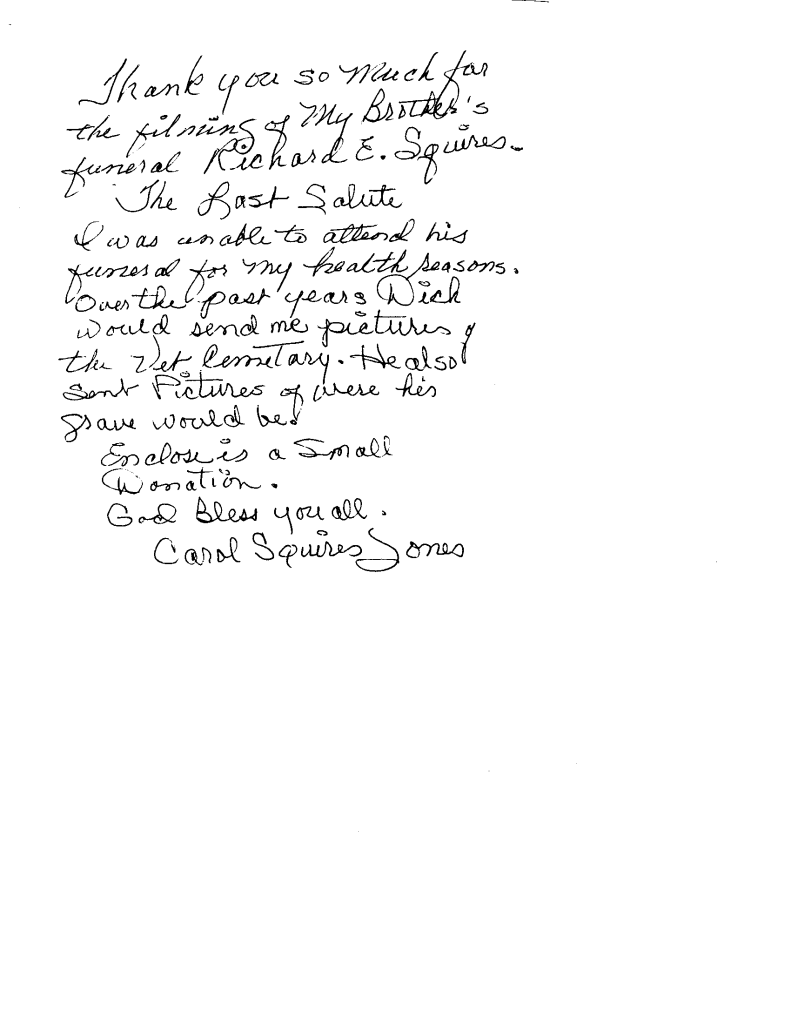 Thank you so much for
the filming of My Brother's
funeral Richard E. Squires.
The Last Salute
I was unable to attend his
funeral for my health reasons.
Over the past years Dick
would send me pictures of
the Vet Cemetary. He also
Sent Pictures of were his
grave would be.
Enclose is a Small
Donation.
God Bless you all.
Carol Squires Jones